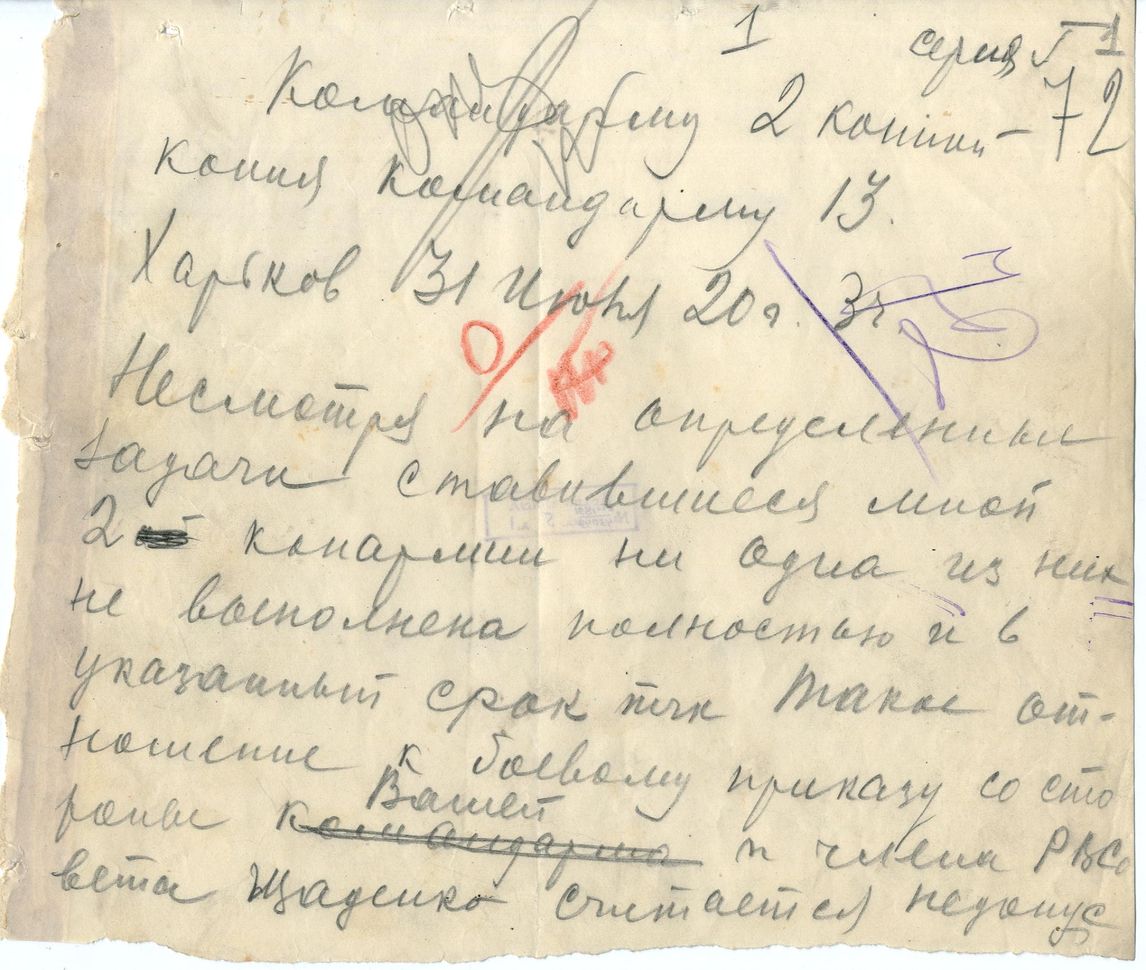 1 серия Г 1
72
Командарму 2 конной
копия командарму 13.
Харьков 31 Июня 20 г. 3 ч
Несмотря на определенные
задачи ставившиеся мной
2 конармии ни одна из них
не выполнена полностью и в
указанный срок тчк Такое от-
ношение к боевому приказу со сто
Вашей
роны командарма и члена РВСо
вета Щаденко считается недопус